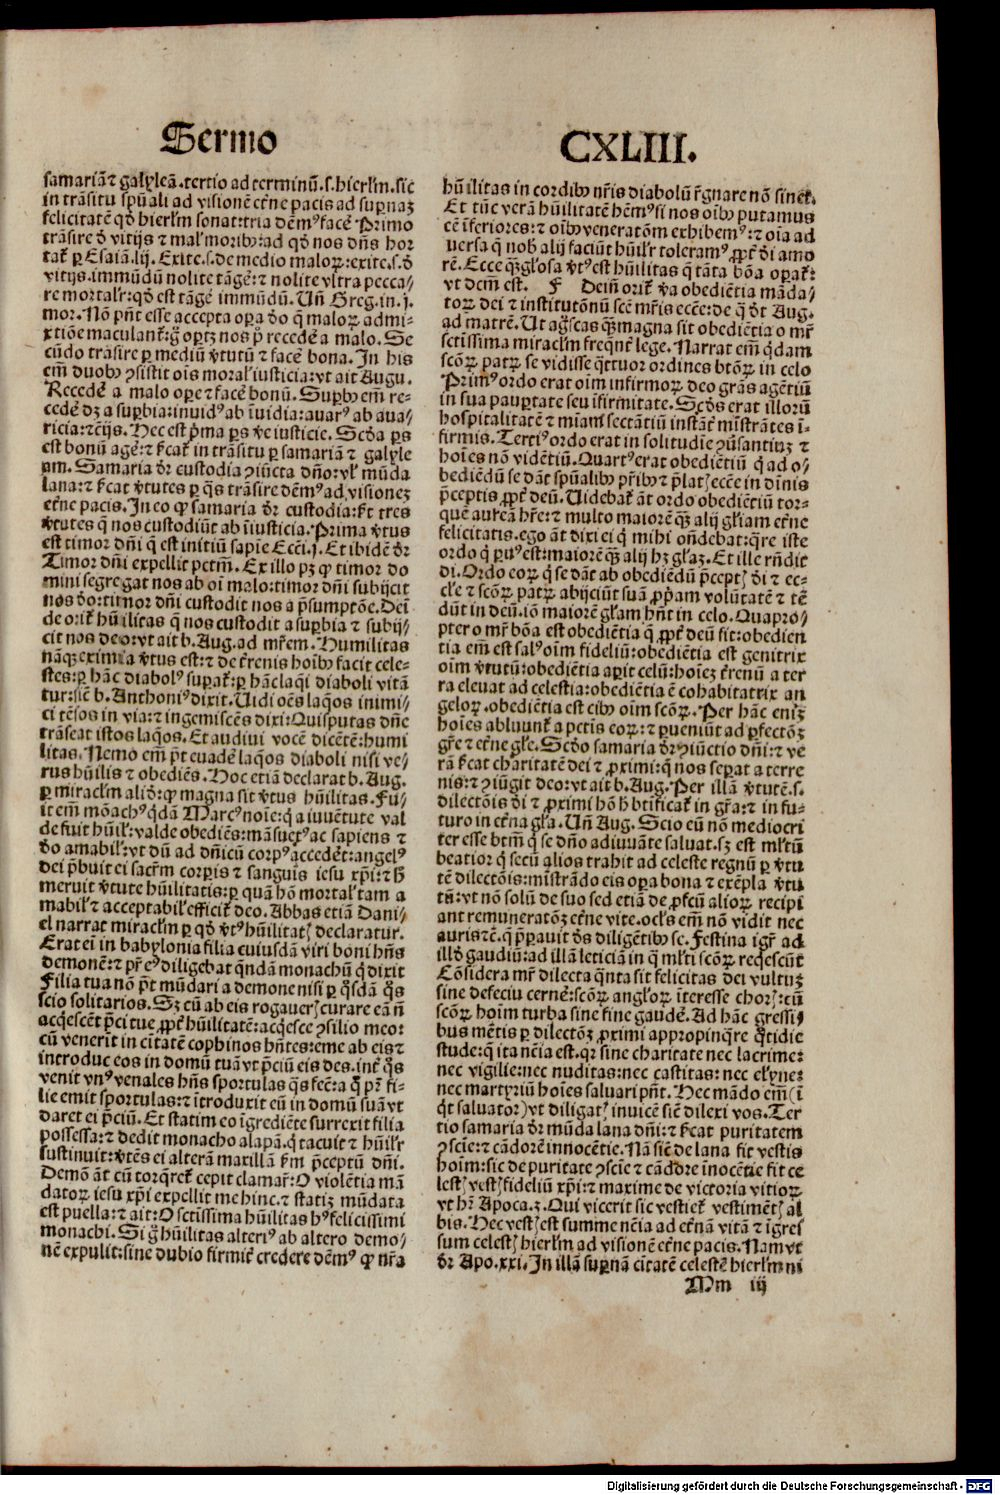 Sermo CXLIII.
samariā ⁊ galyleā. tertio ad terminū. s. hierl̄m. sic̄
in trāsitu spūali ad visionē et̄ne pacis ad supnaz
felicitatē qd̄ hierl̄m sonat: tria dēmꝰ facē. Primo
trāsire d̄ vitijs ⁊ mal' morib: ad qd̄ nos dn̄s hor
tat̄ p Esaiā. lij. Exite. s. de medio maloꝝ: exite. s. d̄
vitijs. immūdū nolite tāgē: ⁊ nolite vltra pecca⸗
re mortalr̄: qd̄ est tāgē immūdū. Un̄ Greg. in. j.
mor. Nō pn̄t esse accepta opa d̄o q̄ maloꝝ admi⸗
xtiōe maculant̄: g̊ optꝫ nos p̄ recedē a malo. Se
cūdo trāsire p mediū v̄tutū ⁊ facē bona. In his
em̄ duob ꝯsistit oīs moral' iusticia: vt ait Augu.
Recedē a malo ope ⁊ facē bonū. Supb em̄ re⸗
cedē dꝫ a supbia: inuidꝰ ab īuidia: auarꝰ ab aua⸗
ricia: ⁊c̄ijs. Hec est p̄ma ps v̄e iusticie. Scd̄a ps
est bonū agē: ⁊ s̄cat̄ in trāsitu p samariā ⁊ galyle
am. Samaria dr̄ custodia ꝯiūcta dn̄o: vl' mūda
lana: ⁊ s̄cat v̄tutes p q̄s trāsire dēmꝰ ad visionez
et̄ne pacis. In eo ꝙ samaria dr̄ custodia: s̄t tres
v̄tutes q̄ nos custodiūt ab īiusticia. Prima v̄tus
est timor dn̄i q̄ est initiū sapie Ecci. j. Et ibidē dr̄
Timor dn̄i expellit pctm̄. Ex illo pꝫ ꝙ timor do
mini segregat nos ab oī malo: timor dn̄i subijcit
nos d̄o: timor dn̄i custodit nos a p̄sumptōe. Deī
de orit̄ hūilitas q̄ nos custodit a supbia ⁊ subij⸗
cit nos deo: vt ait b. Aug. ad mr̄em. Humilitas
nāqꝫ eximia v̄tus est: ⁊ de t̄renis hoīb facit cele⸗
stes: p hāc diabolꝰ supat̄: p hāc laq̄i diaboli vitā
tur: sic̄ b. Anthoniꝰ dixit. Uidi oēs laq̄os inimi⸗
ci tēsos in via: ⁊ ingemiscēs dixi: Quis putas dn̄e
trāseat istos laq̄os. Et audiui vocē dicētē: humi
litas. Nemo em̄ pt̄ euadē laq̄os diaboli nisi ve⸗
rus hūilis ⁊ obediēs. Hoc etiā declarat b. Aug.
p miracl̄m aliqd̄: ꝙ magna sit v̄tus hūilitas. Fu⸗
it em̄ mōachꝰ q̄dā Marcꝰ noīe: q̄ a iuuētute val
de fuit hūil': valde obediēs: māsuetꝰ ac sapiens ⁊
d̄o amabil': vt dū ad dn̄icū corpꝰ accedēt: angelꝰ
dei p̄buit ei sacr̄m corpis ⁊ sanguis iesu xp̄i: ⁊ h̄
meruit v̄tute hūilitatis: p quā hō mortal' tam a
mabil' ⁊ acceptabil' efficit̄ deo. Abbas etiā Dani⸗
el narrat miracl̄m p qd̄ v̄tꝰ hūilitatꝭ declaratur.
Erat eī in babylonia filia cuiusdā viri boni hn̄s
demonē: ⁊ pr̄ eꝰ diligebat q̄ndā monachū q̄ dixit
Filia tua nō pt̄ mūdari a demone nisi p q̄sdā q̄s
scio solitarios. Sꝫ cū ab eis rogauerꝭ curare eā n̄
acq̄escēt p̄ci tue ꝓpt̄ hūilitatē: acq̄esce ꝯsilio meo:
cū venerit in citatē cophinos hn̄tes: eme ab eis ⁊
introduc eos in domū tuā vt p̄ciū eis des. int̄ q̄s
venit vnꝰ venales hn̄s sportulas q̄s fec̄: a q̄ pr̄ fi⸗
lie emit sportulas: ⁊ ītroduxit eū in domū suā vt
daret ei p̄ciū. Et statim eo īgrediēte surrexit filia
possessa: ⁊ dedit monacho alapā. q̄ tacuit ⁊ hūilr̄
sustinuit: v̄tēs ei alterā maxillā s̄m p̄ceptū dn̄i.
Demō āt cū torq̄ret̄ cepit clamar̄: O violētia mā
datoꝝ iesu xp̄i expellit me hinc. ⁊ statiꝫ mūdata
est puella: ⁊ ait: O sctīssima hūilitas hꝰ felicissimi
monachi. Si g̊ hūilitas alteriꝰ ab altero demo⸗
nē expulit: sine dubio firmit̄ credere dēmꝰ ꝙ nr̄a
hūilitas in cordib nr̄is diabolū r̄gnare nō sinet̄.
Et tūc verā hūilitatē hēmꝰ si nos oīb putamus
ēe īferiores: ⁊ oīb veneratōm exhibemꝰ: ⁊ oīa ad
uersa q̄ nob alij faciūt hūilr̄ toleramꝰ ꝓpt̄ d̄i amo
rē. Ecce qꝫ gl̄osa v̄tꝰ est hūilitas q̄ tāta bōa opat̄:
vt dcm̄ est. F Deīn orit̄ v̄a obediētia māda⸗
toꝝ dei ⁊ institutōnū scē mr̄is ecc̄e: de q̄ dt̄ Aug.
ad matrē. Ut ag̊scas qꝫ magna sit obediētia o mr̄
sctīssima miracl̄m freqn̄t̄ lege. Narrat em̄ q̄dam
scōꝝ patꝝ se vidisse q̄ttuor ordines btōꝝ in celo
Primꝰ ordo erat oīm infirmoꝝ deo grās agētiū
in sua paupertate seu īfirmitate. Scd̄s erat illorū
hospitalitatē ⁊ mīam sectātiū instāt̄ mīstrātes ī⸗
firmis. Tertiꝰ ordo erat in solitudīe ꝯūsantiuꝫ ⁊
hoīes nō vidētiū. Quartꝰ erat obediētiū q̄ ad o⸗
bediēdū se dāt spūalib pr̄ib ⁊ p̄latꝭ ecc̄e in dīnis
p̄ceptis ꝓpt̄ deū. Uidebat̄ āt ordo obediētiū tor⸗
quē aureā hr̄e: ⁊ multo maiorē qꝫ alij gl̄iam et̄ne
felicitatis. ego āt dixi ei q̄ mihi oñdebat: q̄re iste
ordo q̄ puꝰ est: maiorē qꝫ alij hꝫ gl̄aꝫ. Et ille rn̄dit
di. Ordo eoꝝ q̄ se dāt ab obediēdū p̄ceptꝭ d̄i ⁊ ec⸗
cl̄e ⁊ scōꝝ patꝝ abijciūt suā ꝓpam volūtatē ⁊ tē
dūt in deū. iō maiorē gl̄am hn̄t in celo. Quapro⸗
pter o mr̄ bōa est obediētia q̄ ꝓpt̄ deū fit: obedien
tia em̄ est salꝰ oīm fideliū: obediētia est genitrix
oīm v̄tutū: obediētia apit celū: hoīeꝫ t̄renū a ter
ra eleuat ad celestia: obediētia ē cohabitatrix an
geloꝝ. obediētia est cib oīm scōꝝ. Per hāc eniꝫ
hoīes abluunt̄ a pctīs eoꝝ: ⁊ pueniūt ad pfectōꝫ
gr̄e ⁊ et̄ne gl̄e. Scd̄o samaria dr̄ ꝯiūctio dn̄i: ⁊ ve
rā s̄cat charitatē dei ⁊ ꝓximi: q̄ nos sepat a terre
nis: ⁊ ꝯiūgit deo: vt ait b. Aug. Per illā v̄tutē. s.
dilectōis d̄i ⁊ ꝓximi hō h̄ btīficat̄ in gr̄a: ⁊ in fu⸗
turo in et̄na gl̄a. Un̄ Aug. Scio eū nō mediocri
ter esse btm̄ q̄ se dn̄o adiuuāte saluat. sꝫ est ml̄tū
beatior q̄ secū alios trahit ad celeste regnū p v̄tu
tē dilectōis: mīstrādo eis opa bona ⁊ exēpla v̄tu
tū: vt nō solū de suo sed etiā de ꝓfcū alioꝝ recipi
ant remuneratōꝫ et̄ne vite. ocl̄s em̄ nō vidit nec
auris ⁊c̄. q̄ p̄parauit d̄s diligētib se. Festina igr̄ ad
illd̄ gaudiū: ad illā leticiā in q̄ ml̄ti scōꝝ reqescūt
Cōsidera mr̄ dilecta q̄nta sit felicitas dei vultuꝫ
sine defectu cernē: scōꝝ angl̄oꝝ īteresse chorꝭ: cū
scōꝝ hoīm turba sine fine gaudē. Ad hāc gressi⸗
bus mētis p dilectōꝫ ꝓximi appropinq̄re q̄tidie
stude: q̄ ita nēcia est. qr̄ sine charitate nec lacrime:
nec vigilie: nec nuditas: nec castitas: nec elyne:
nec martyriū hoīes saluari pn̄t. Hec mādo em̄ (ī
q̄t saluator) vt diligatꝭ inuicē sic̄ dilexi vos. Ter
tio samaria dr̄ mūda lana dn̄i: ⁊ s̄cat puritatem
ꝯscīe: ⁊ cādorē innocētie. Nā sic̄ de lana fit vestis
hoīm: sic de puritate ꝯscīe ⁊ cādore īnocētie fit ce
lestꝭ vestꝭ fideliū xp̄i: ⁊ maxime de victoria vitioꝝ
vt hr̄ Apoca. 3. Qui vicerit sic vestiet̄ vestimētꝭ al
bis. Hec vestꝭ est summe nēcia ad et̄nā vitā ⁊ īgres
sum celestꝭ hierl̄m ad visionē et̄ne pacis. Nam vt
dr̄ Apo. xxi. In illā supnā citatē celestē hierl̄m ni
Mm iij
Digitalisierung gefördert durch die Deutsche Forschungsgemeinschaft - DFG